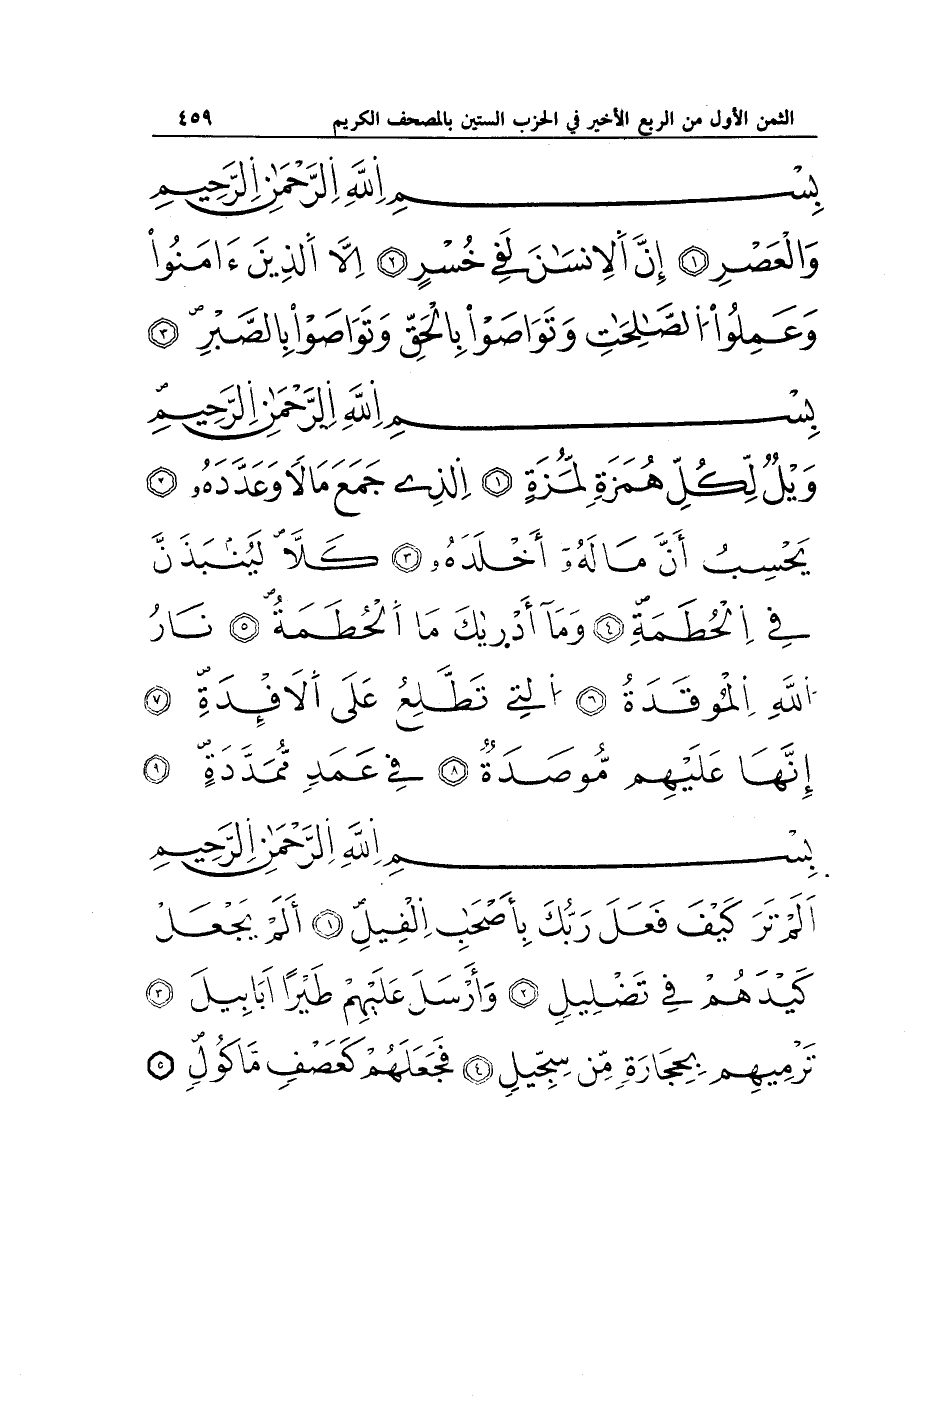 الثمن الأول من الربع الأخير في الحزب الستين بالمصحف الكريم ٤٥٩
بِسْمِ اِللَّهِ اِلرَّحْمَٰنِ اِلرَّحِيمِ
وَالْعَصْرِ ١ إِنَّ اَلِانسَٰنَ لَفِے خُسْرٍ ٢ اِلَّا اَلذِينَ ءَامَنُواْ
وَعَمِلُواْ اُلصَّٰلِحَٰتِ وَتَوَاصَوْاْ بِالْحَقِّ وَتَوَاصَوْاْ بِالصَّبْرِ ٣
بِسْمِ اِللَّهِ اِلرَّحْمَٰنِ اِلرَّحِيمِ
وَيْلٌ لِّكُلِّ هُمَزَةٍ لُّمَزَةٍ ١ اِلذِے جَمَعَ مَالًا وَعَدَّدَهُۥ ٢
يَحْسِبُ أَنَّ مَالَهُۥٓ أَخْلَدَهُۥ ٣ كَلَّا لَيُنۢبَذَنَّ
فِے اِلْحُطَمَةِ ٤ وَمَآ أَدْرِيٰكَ مَا اَلْحُطَمَةُ ٥ نَارُ
اُللَّهِ اِلْمُوقَدَةُ ٦ اُلتِے تَطَّلِعُ عَلَى اَلَافْـِٕدَةِ ٧
إِنَّهَا عَلَيْهِم مُّوصَدَةٌ ٨ فِے عَمَدٍ مُّمَدَّدَةٍ ٩
بِسْمِ اِللَّهِ اِلرَّحْمَٰنِ اِلرَّحِيمِ
اَلَمْ تَرَ كَيْفَ فَعَلَ رَبُّكَ بِأَصْحَٰبِ اِلْفِيلِ ١ أَلَمْ يَجْعَلْ
كَيْدَهُمْ فِے تَضْلِيلٍ ٢ وَأَرْسَلَ عَلَيْهِمْ طَيْرًا اَبَابِيلَ ٣
تَرْمِيهِم بِحِجَارَةٍ مِّن سِجِّيلٍ ٤ فَجَعَلَهُمْ كَعَصْفٍ مَّاكُولٍ ٥